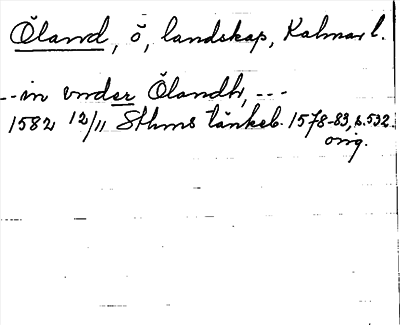 Öland, ö, landskap, Kalmar l.
--in vnder Ölandh, ---
1582 12/11 Sthms tänkeb. 1578-83, s. 532.
orig.